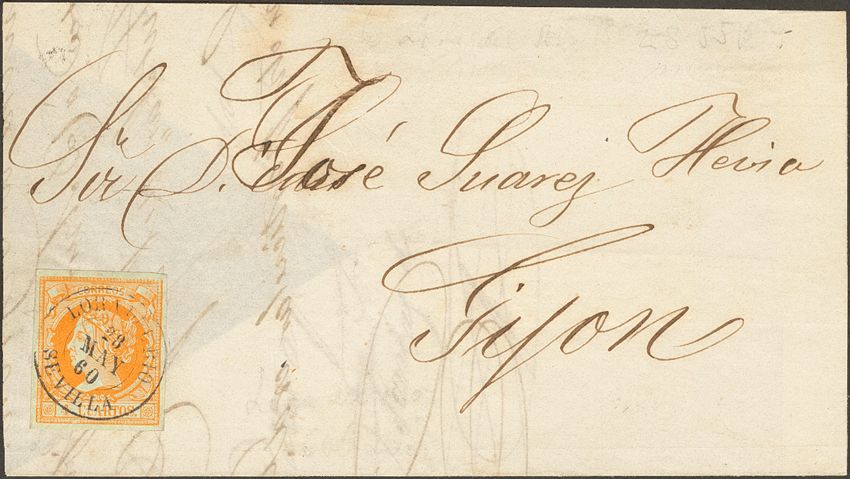 Sr. D. José Suarez Hevia
Gijon
CORREOS
LORA DEL RIO
28
MAY
60
SEVILLA
4 CUARTOS.